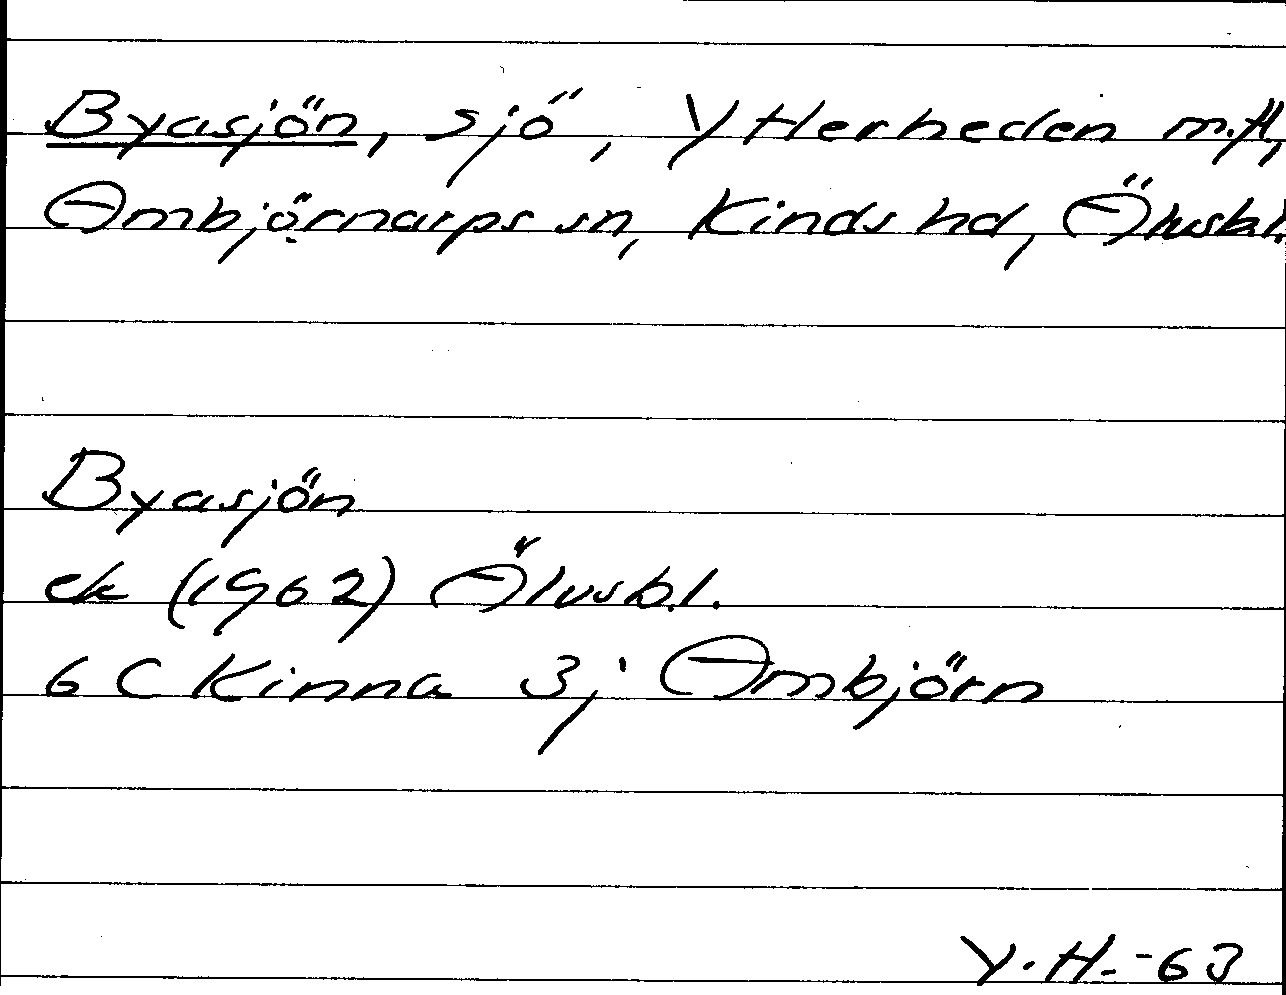 Byasjön, sjö, Ytterheden m.fl,
Ombjörnarps sn, Kinds hd, Älvsb.l.
Byasjön
ek (1962) Älvsb.l.
6 C Kinna 3j Ombjörn
Y.H.-63